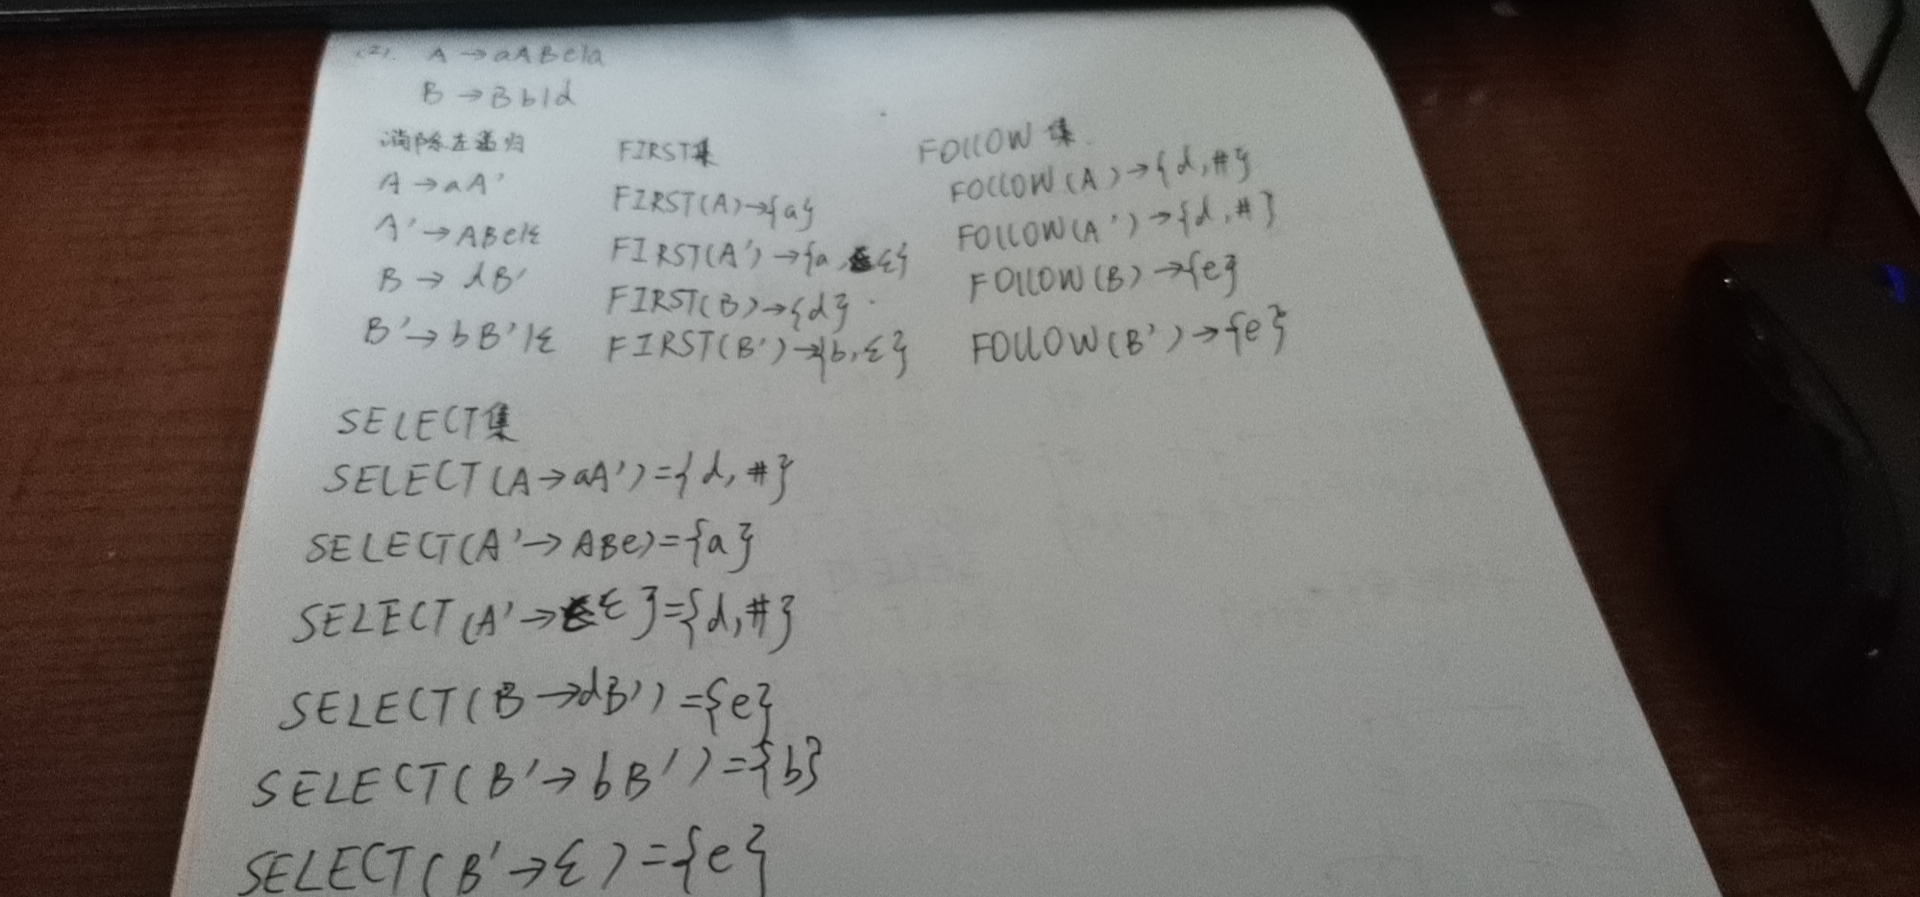 (2). A→aABe|a
B→Bb|d
消除左递归
A→aA'
A'→ABe|ε
B→dB'
B'→bB'|ε
FIRST集
FIRST(A)→{a}
FIRST(A')→{a,ε}
FIRST(B)→{d}.
FIRST(B')→{b,ε}
FOLLOW集.
FOLLOW(A)→{d,#}
FOLLOW(A')→{d,#}
FOLLOW(B)→{e}
FOLLOW(B')→{e}
SELECT集
SELECT(A→aA')={d,#}
SELECT(A'→ABe)={a}
SELECT(A'→ε}={d,#}
SELECT(B→dB')={e}
SELECT(B'→bB')={b}
SELECT(B'→ε)={e}